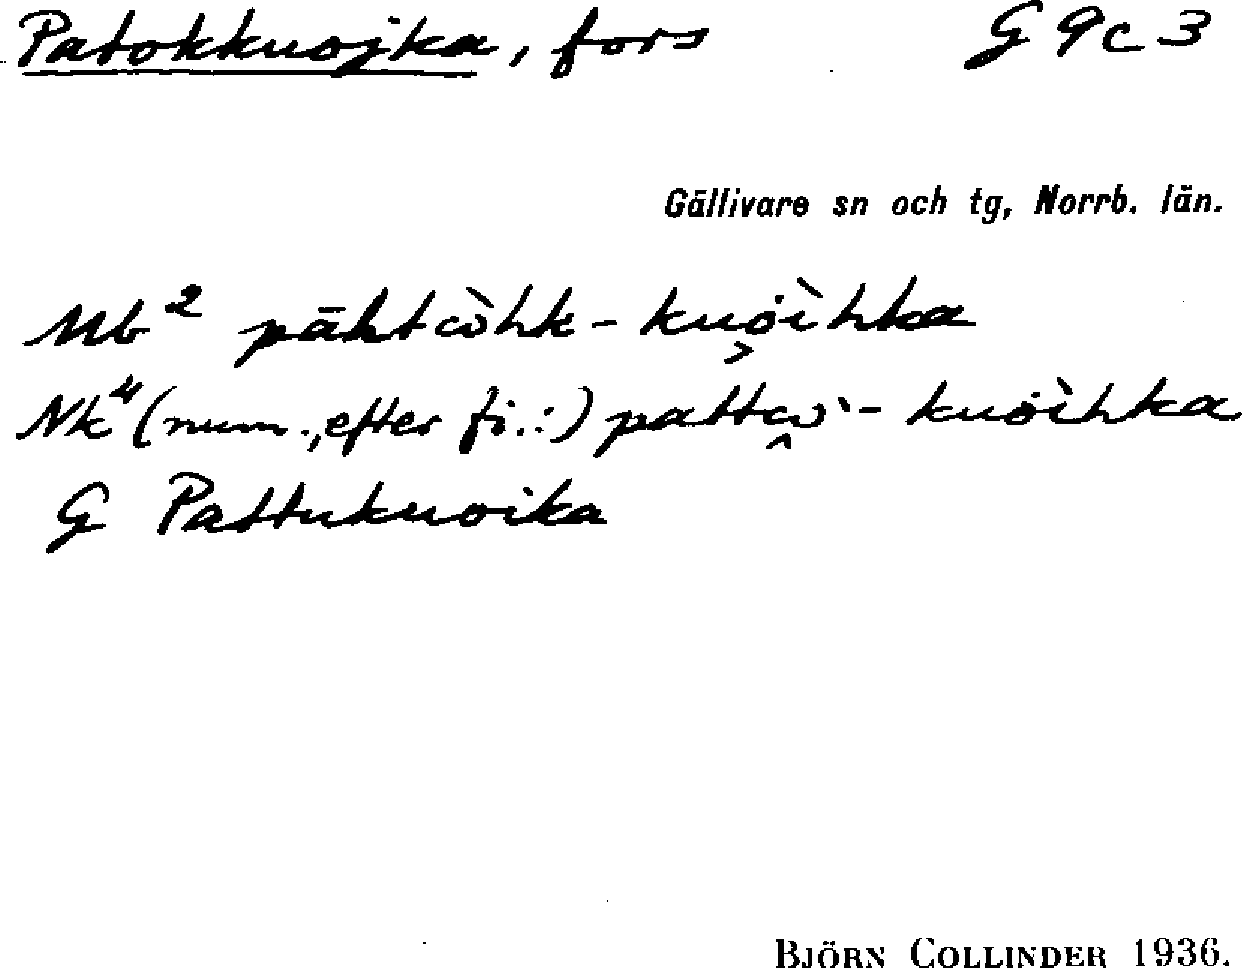 Patokkuojka, fors G 9c 3
Gällivare sn och tg, Norrb. län.
Mb² pāhtὼhk-kuȯi̇̀hka
Nk⁴ (num., efter fi.:) pattὼ̭-kuȯi̇̀hka
G Pattukuoika
BJÖRN COLLINDER 1936.